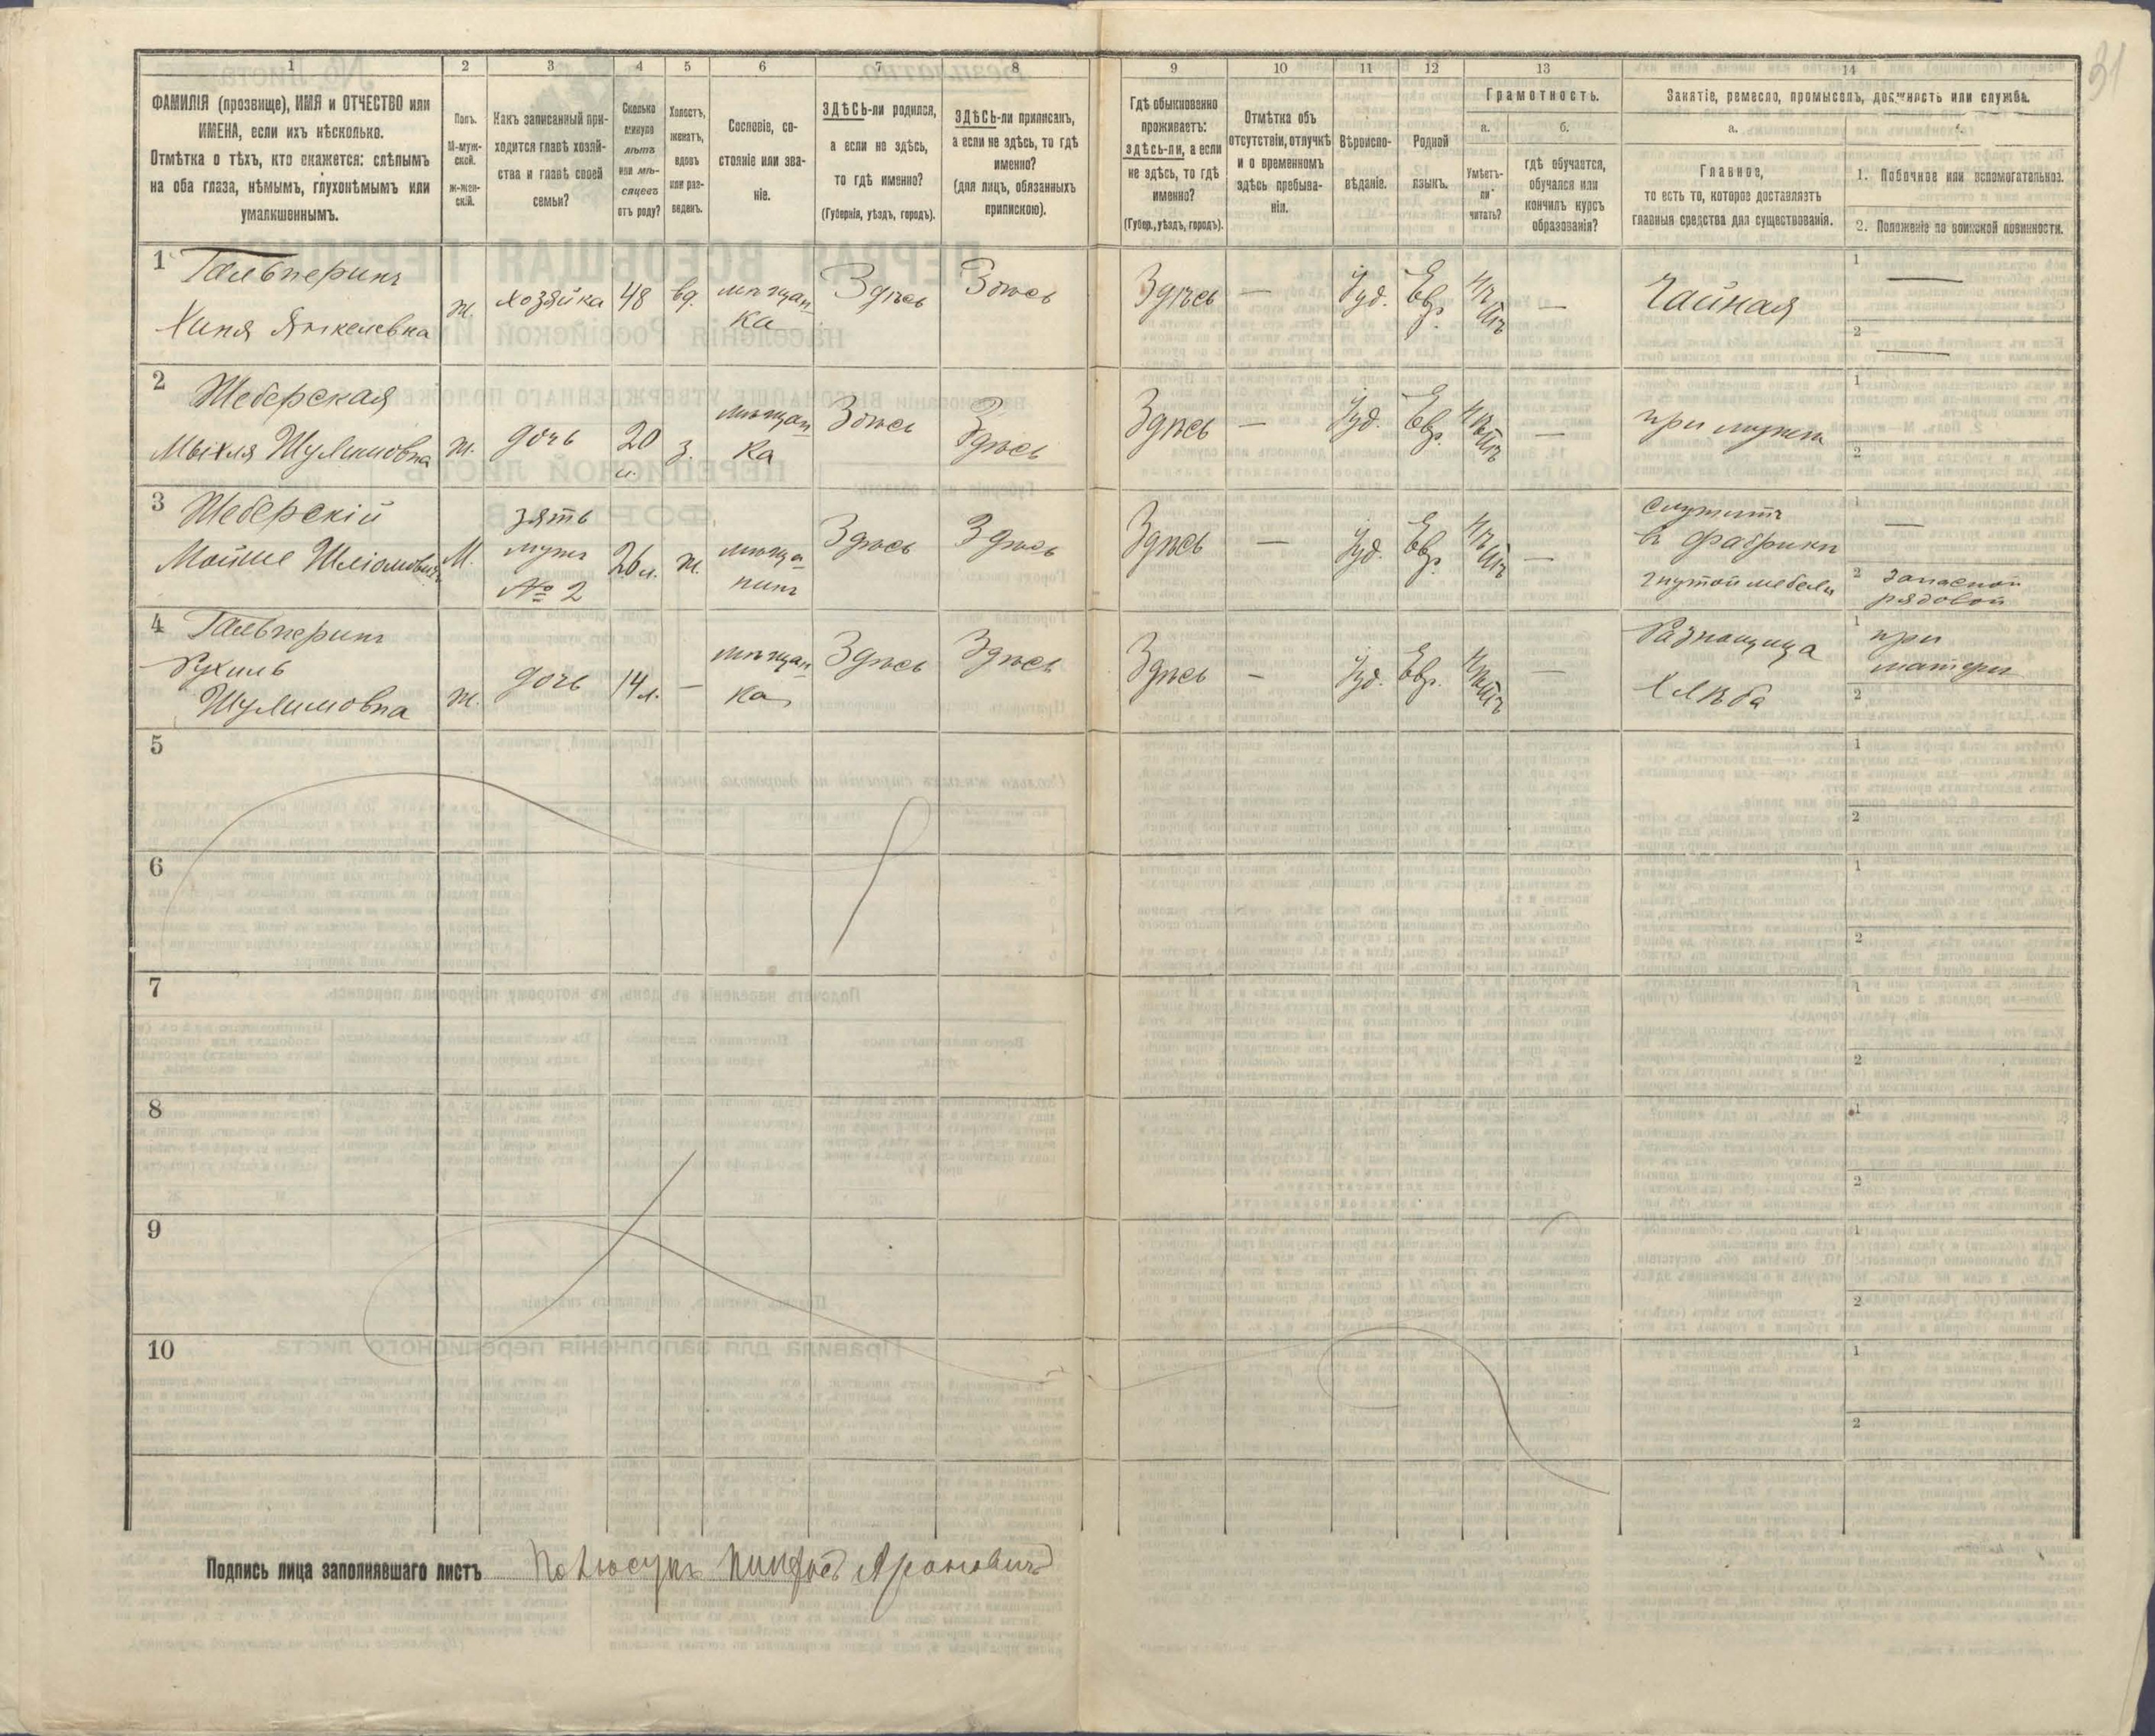 31
1 2 3 4 5 6 7 8 9 10 11 12 13 14
ФАМИЛІЯ (прозвище), ИМЯ и ОТЧЕСТВО или
ИМЕНА, если ихъ нѣсколько.
Отмѣтка о тѣхъ, кто окажется: слѣпымъ
на оба глаза, нѣмымъ, глухонѣмымъ или
умалишеннымъ.
Полъ.
М-муж-
ской.
Ж-жен-
скій.
Какъ записанный при-
ходится главѣ хозяй-
ства и главѣ своей
семьи?
Сколько
минуло
лѣтъ
или мѣ-
сяцевъ
отъ роду?
Холостъ,
женатъ,
вдовъ
или раз-
веденъ.
Сословіе, со-
стояніе или зва-
ніе.
ЗДѢСЬ-ли родился,
а если не здѣсь,
то гдѣ именно?
(Губернія, уѣздъ, городъ).
ЗДѢСЬ-ли приписанъ,
а если не здѣсь, то гдѣ
именно?
(для лицъ, обязанныхъ
припискою).
Гдѣ обыкновенно
проживаетъ:
здѣсь-ли, а если
не здѣсь, то гдѣ
именно?
(Губер., уѣздъ, городъ).
Отмѣтка объ
отсутствіи, отлучкѣ
и о временномъ
здѣсь пребыва-
ніи.
Вѣроиспо-
вѣданіе.
Родной
языкъ.
Грамотность.
а.
Умѣетъ-
ли
читать?
б.
гдѣ обучается,
обучался или
кончилъ курсъ
образованія?
Занятіе, ремесло, промыселъ, должность или служба.
а.
Главное,
то есть то, которое доставляетъ
главныя средства для существованія.
1. Побочное или вспомогательное.
2. Положеніе по воинской повинности.
1 Гальперинъ
Хиня Янкелевна
ж.
хозяйка
48
вд.
мѣщан
ка
Здѣсь
Здѣсь
Здѣсь
—
Іуд.
Евр.
нѣтъ
—
Чайная
1 —
2 —
2 Шеберская
Мыхля Шулимовна
ж.
дочь
20
л.
з.
мѣщан
ка
Здѣсь
Здѣсь
Здѣсь
—
Іуд.
Евр.
нѣтъ
—
при мужѣ
1
2
3 Шеберскій
Мойше Шліомовичъ
М.
зять
мужъ
№ 2
26 л.
ж.
мѣща
нинъ
Здѣсь
Здѣсь
Здѣсь
—
Іуд.
Евр.
нѣтъ
—
служитъ
въ фабрики
гнутой мебели
1 —
2 запасной
рядовой
4 Гальперинъ
Рухиль
Шулимовна
ж.
дочь
14 л.
—
мѣщан
ка
Здѣсь
Здѣсь
Здѣсь
—
Іуд.
Евр.
нѣтъ
—
Разнощица
хлѣба
1 при
матери
2
5
1
2
6
1
2
7
1
2
8
1
2
9
1
2
10
1
2
Подпись лица заполнявшаго листъ Ароновичъ